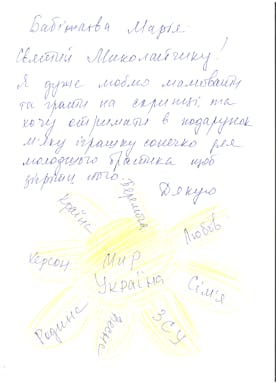 Марія
Святий Миколайчику!
Я дуже люблю малювати
та грати на скрипці та
хочу отримати в подарунок
м'яку іграшку сонечко для
молодшого братика щоб
зігріти його.
Дякую
Перемога
Країна
Любов
Херсон
Мир
Україна
Сім'я
Родина
ЗСУ